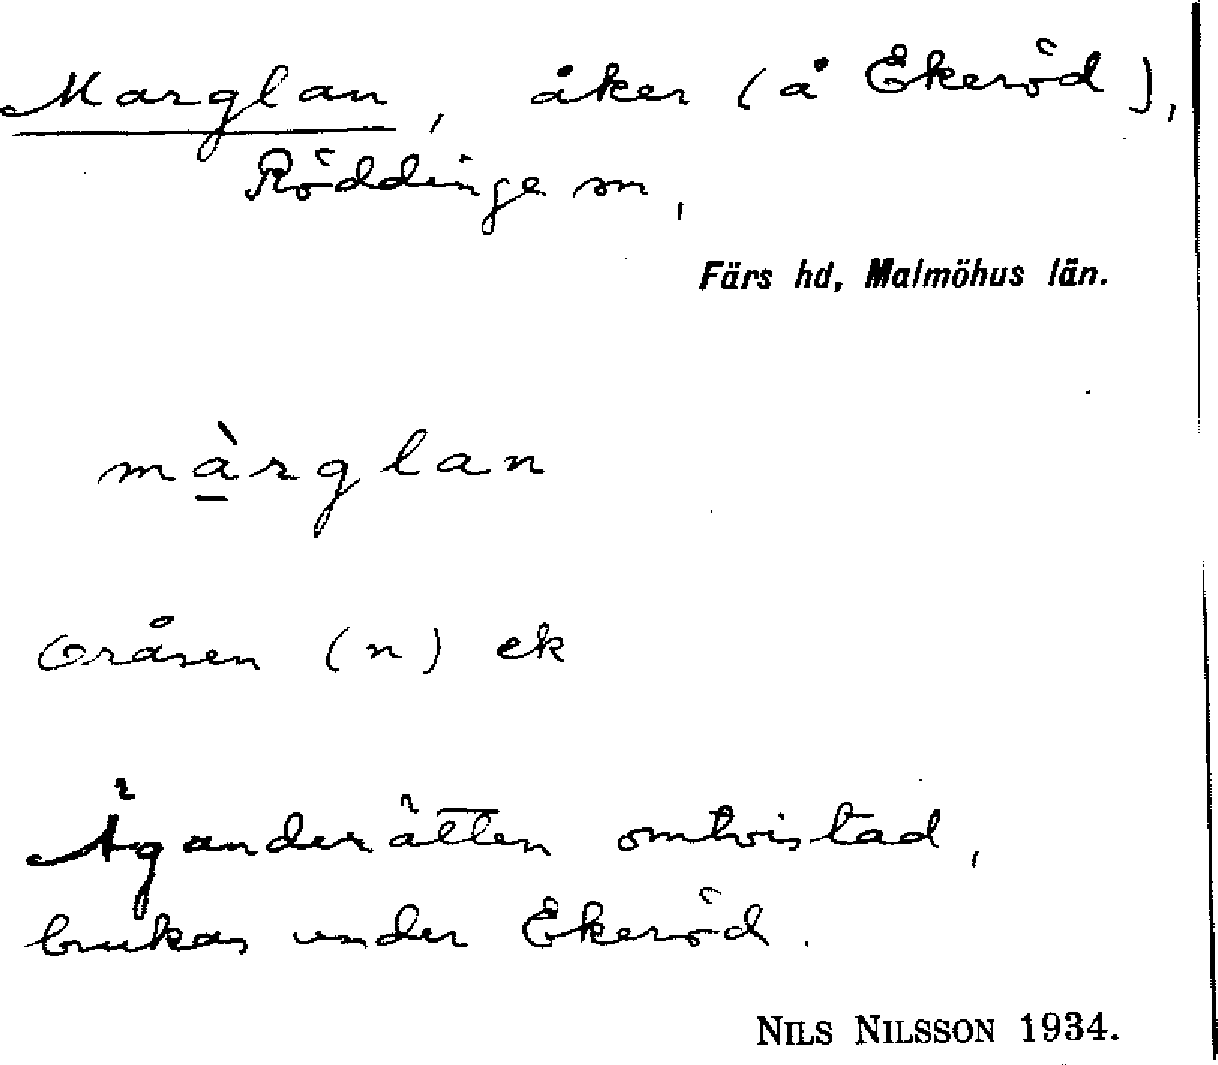 Marglan, åker (å Ekeröd),
Röddinge sn,
Färs hd, Malmöhus län.
màrglan
Oråsen (n) ek
Äganderätten omtvistad,
brukas under Ekeröd.
NILS NILSSON 1934.